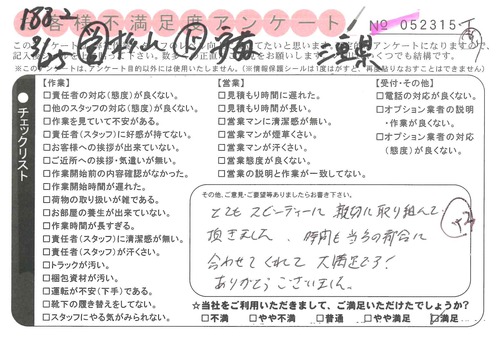 188-2
お客様不満足度アンケート
No 052315
3/25 杉山 三重県
【作業】
□責任者の対応(態度)が良くない。
□他のスタッフの対応(態度)が良くない。
□作業を見ていて不安がある。
□責任者(スタッフ)に好感が持てない。
□お客様への挨拶が出来ていない。
□ご近所への挨拶・気遣いが無い。
□作業開始前の内容確認がなかった。
□作業開始時間が遅れた。
□荷物の取り扱いが雑である。
□お部屋の養生が出来ていない。
□作業時間が長すぎる。
□責任者(スタッフ)に清潔感が無い。
□責任者(スタッフ)が汗くさい。
□トラックが汚い。
□梱包資材が汚い。
□運転が不安(下手)である。
□靴下の履き替えをしてない。
□スタッフにやる気がみられない。
【営業】
□見積もり時間に遅れた。
□見積もり時間が長い。
□営業マンに清潔感が無い。
□営業マンが煙草くさい。
□営業マンが汗くさい。
□営業態度が良くない。
□営業の説明と作業が一致してない。
【受付・その他】
□電話の対応が良くない。
□オプション業者の説明
・作業が良くない。
□オプション業者の対応
(態度)が良くない。
チェックリスト
その他、ご意見・ご要望等ありましたらお書き下さい。
とてもスピーディーに親切に取り組んで
頂きました、時間も当方の都合に
合わせてくれて大満足です!
ありがとうございました。
☆当社をご利用いただきまして、ご満足いただけたでしょうか?
□不満 □やや不満 □普通 □やや満足 □満足